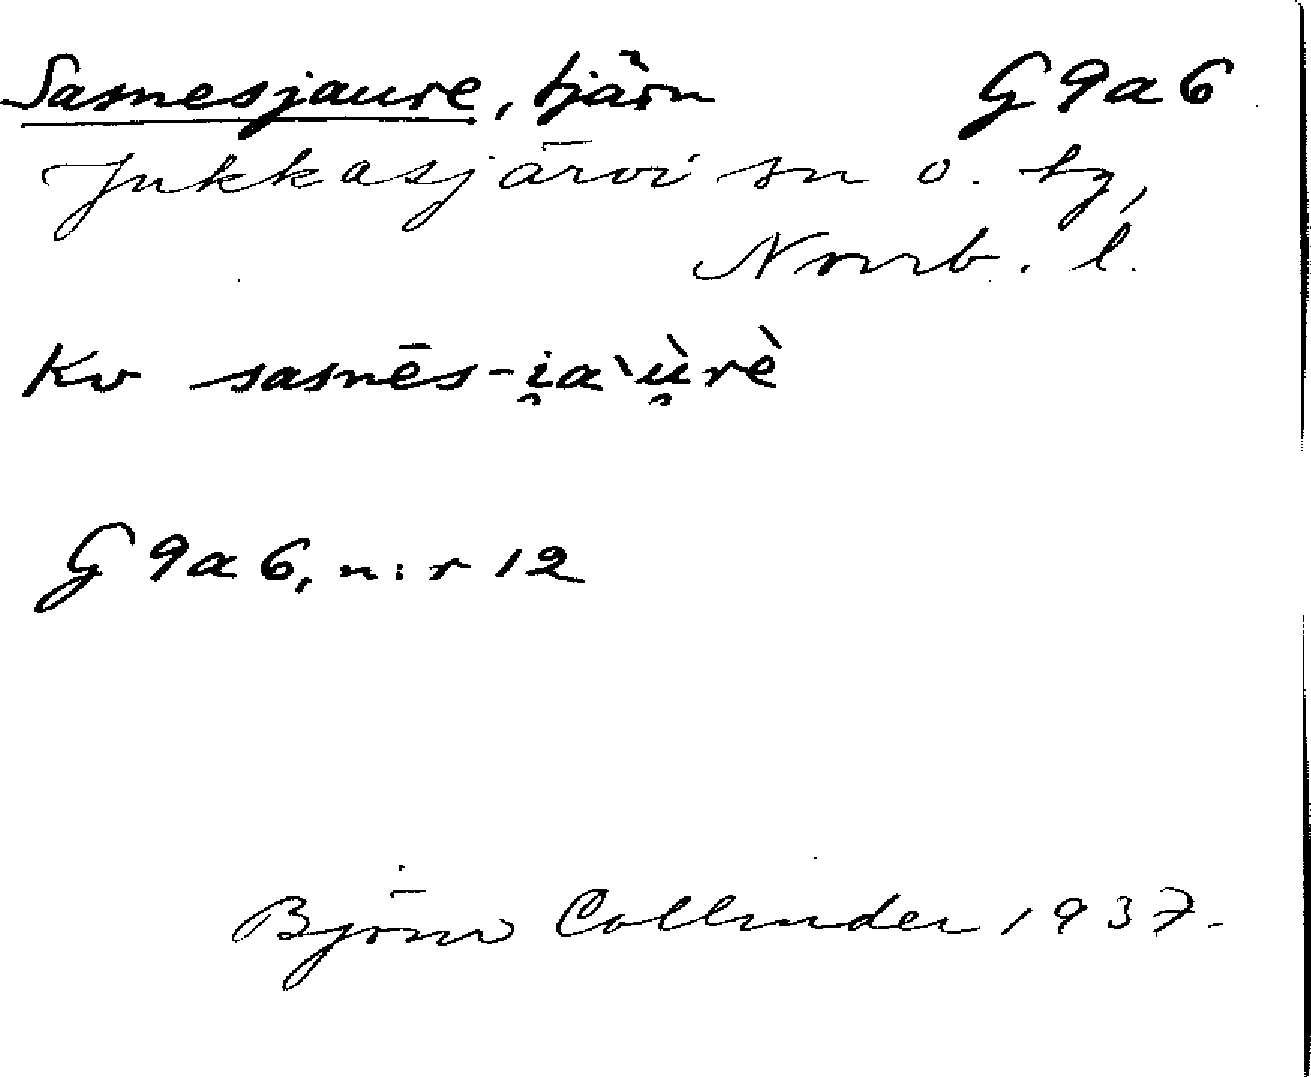 Sasnesjaure, tjärn G9a6
Jukkasjärvi sn o. tg,
Norrb. l.
Kv sasnēs-i̯a`ù̯rè
G9a6, n:r 12
Björn Collinder 1937.